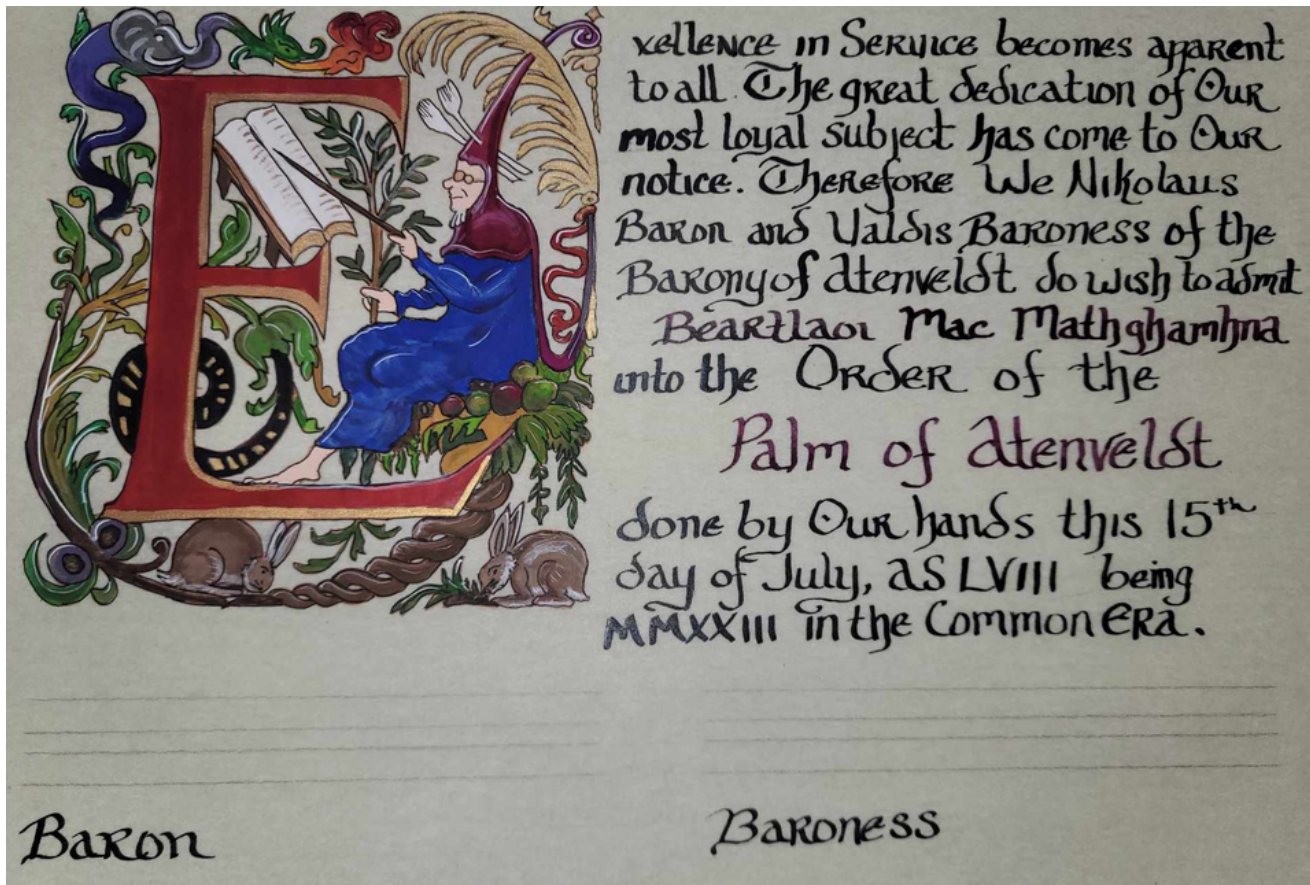 Exellence in Service becomes apparent
to all. The great dedication of Our
most loyal subject has come to Our
notice. Therefore We Nikolaus
Baron and Valdis Baroness of the
Barony of Atenveldt do wish to admit
Béartlaoi Mac Mathghamhna
into the Order of the
Palm of Atenveldt
done by Our hands this 15th
day of July, AS LVIII being
MMXXIII in the Common Era.
Baron
Baroness